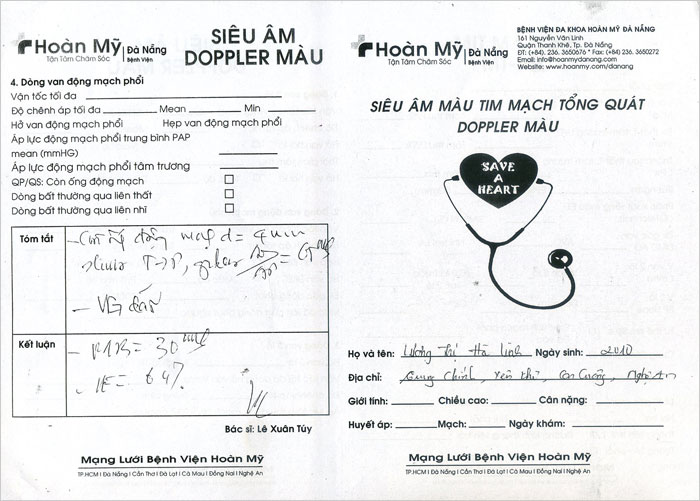 Hoàn Mỹ Đà Nẵng
Bệnh viện
Tận Tâm Chăm Sóc
SIÊU ÂM
DOPPLER MÀU
4. Dòng van động mạch phổi
Vận tốc tối đa
Độ chênh áp tối đa Mean Min
Hở van động mạch phổi Hẹp van động mạch phổi
Áp lực động mạch phổi trung bình PAP
mean (mmHG)
Áp lực động mạch phổi tâm trương
QP/QS: Còn ống động mạch
Dòng bất thường qua liên thất
Dòng bất thường qua liên nhĩ
Tóm tắt
- Còn ống động mạch d = 4mm
shunt T→P,
- VG dãn
Kết luận
= 30
- = 64%
Bác sĩ: Lê Xuân Túy
Mạng Lưới Bệnh Viện Hoàn Mỹ
TP.HCM I Đà Nẵng I Cần Thơ I Đà Lạt I Cà Mau I Đồng Nai I Nghệ An
Hoàn Mỹ Đà Nẵng
Bệnh viện
Tận Tâm Chăm Sóc
BỆNH VIỆN ĐA KHOA HOÀN MỸ ĐÀ NẴNG
161 Nguyễn Văn Linh
Quận Thanh Khê, Tp. Đà Nẵng
ĐT: (+84) 236. 3650676 * Fax: (+84) 236. 3650272
Email: info@hoanmydanang.com
Website: www.hoanmy.com/danang
SIÊU ÂM MÀU TIM MẠCH TỔNG QUÁT
DOPPLER MÀU
SAVE
A
HEART
Họ và tên: Lương Thị Hà Linh Ngày sinh: 2010
Địa chỉ: Trung Chính, Yên Khê, Con Cuông, Nghệ An
Giới tính: Chiều cao: Cân nặng:
Huyết áp: Mạch: Ngày khám:
Mạng Lưới Bệnh Viện Hoàn Mỹ
TP.HCM I Đà Nẵng I Cần Thơ I Đà Lạt I Cà Mau I Đồng Nai I Nghệ An